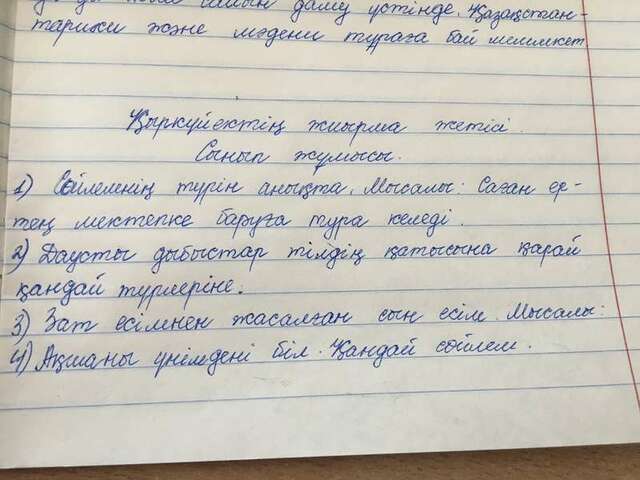 сайын даму үстінде. Қазақстан-
тарихи және мәдени тұраға бай мемлекет
Қыркүйектің жиырма жетісі.
Сынып жұмысы.
1) Сөйлемнің түрін анықта. Мысалы: Саған ер-
тең мектепке баруға тура келеді.
2) Дауысты дыбыстар тілдің қатысына қарай
қандай түрлеріне.
3) Зат есімнен жасалған сын есім. Мысалы:
4) Ақшаны үнімдені біл. Қандай сөйлем.